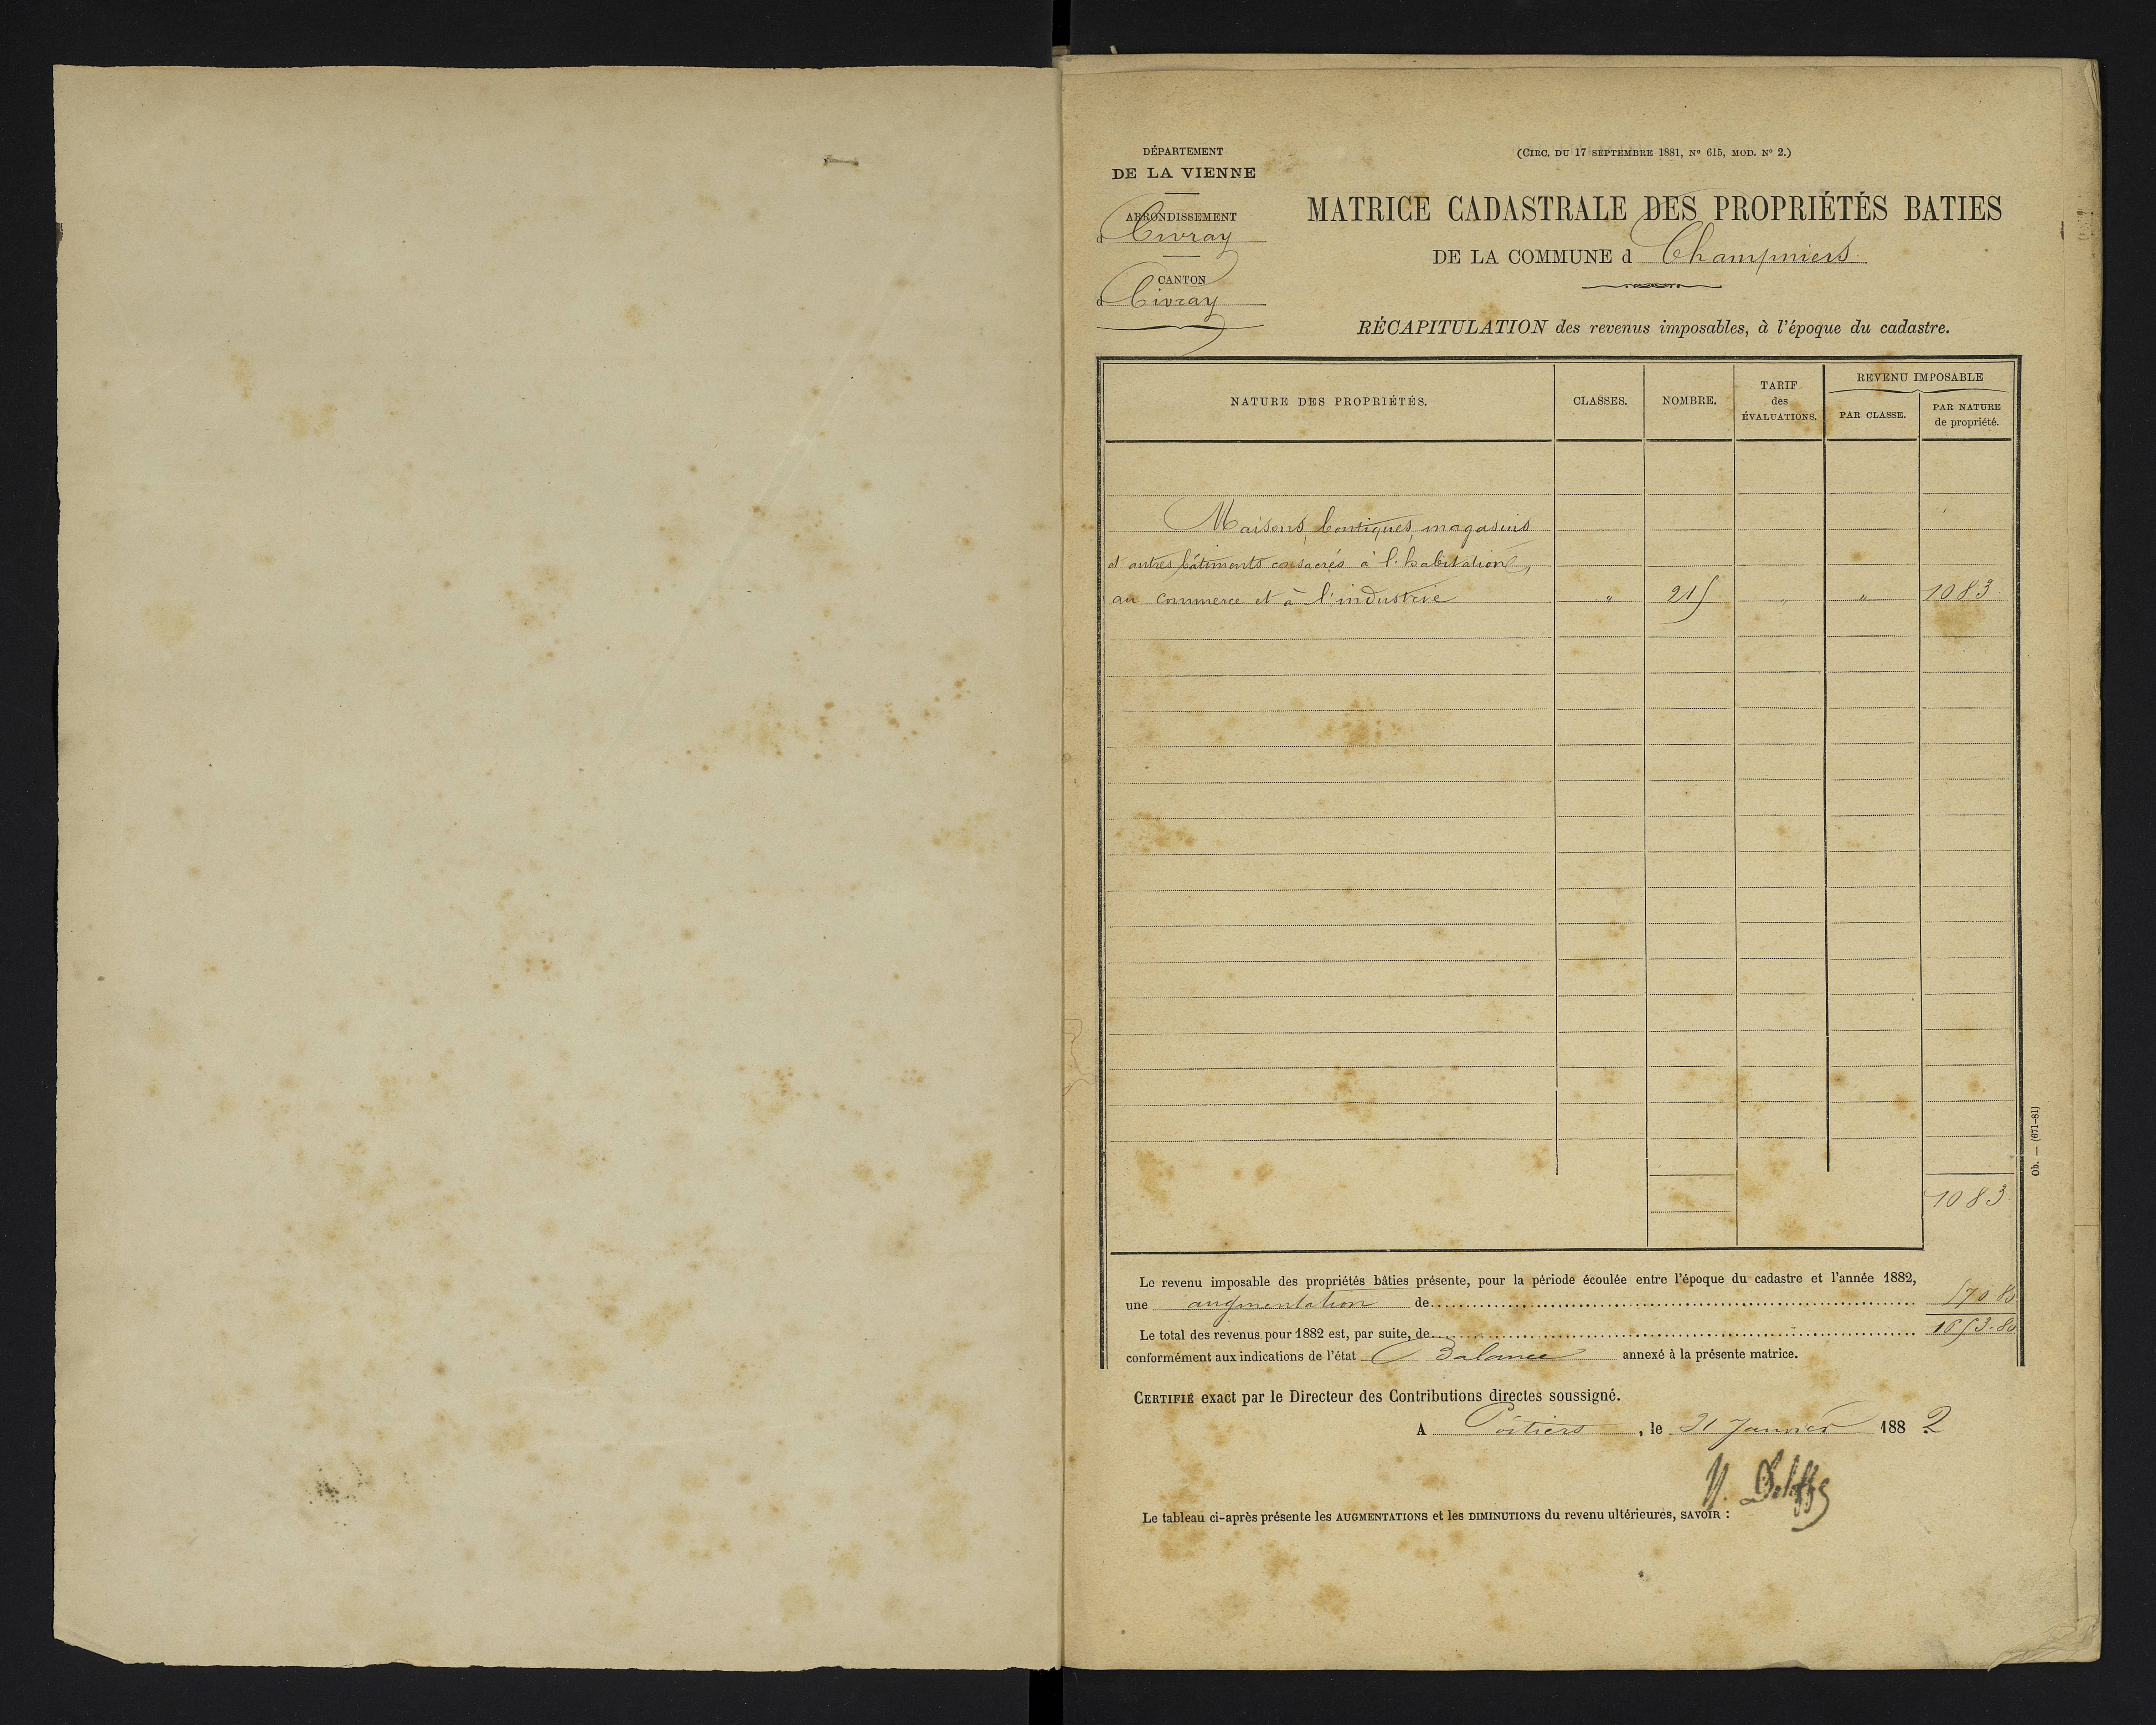 DÉPARTEMENT
DE LA VIENNE
ARRONDISSEMENT
d Civray
CANTON
d Civray
(CIRC. DU 17 SEPTEMBRE 1881, Nº 615, MOD. Nº 2.)
MATRICE CADASTRALE DES PROPRIÉTÉS BATIES
DE LA COMMUNE d Champniers
RÉCAPITULATION des revenus imposables, à l'époque du cadastre.
NATURE DES PROPRIÉTÉS. CLASSES. NOMBRE. TARIF des ÉVALUATIONS. REVENU IMPOSABLE PAR CLASSE. PAR NATURE de propriété.
Maisons, boutiques, magasins
et autres bâtiments consacrés à l'habitation,
au commerce et à l'industrie " 215 " " 1083
1083
Le revenu imposable des propriétés bâties présente, pour la période écoulée entre l'époque du cadastre et l'année 1882,
une augmentation de 570.80
Le total des revenus pour 1882 est, par suite, de 1653.80
conformément aux indications de l'état Balance annexé à la présente matrice.
CERTIFIÉ exact par le Directeur des Contributions directes soussigné.
A Poitiers, le 21 Janvier 1882
Le tableau ci-après présente les AUGMENTATIONS et les DIMINUTIONS du revenu ultérieures, SAVOIR :
Ob. — (671-81)